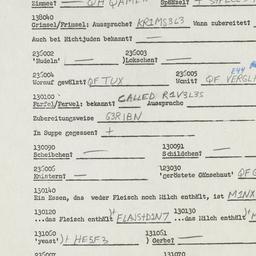 Zimmes? — QH QAMEN Spenzel? +
138040
Grimsel/Frimsel: Aussprache? KRIMS3L3 Wann zubereitet?
Auch bei Nichtjuden bekannt? —
236002 236003
'Nudeln' — )Lokschen? —
236004 236005
Worauf gewälzt? QF TUX Womit? QF
130100
Farfel/Farvel: bekannt? CALLED RIV3L3S Aussprache
Zubereitungsweise G3RIBN
In Suppe gegessen? +
130090 130091
Scheibchen? — Schildchen? —
236006 123030
Knistern? — 'geröstete Gänsehaut'
130140
Ein Essen, das weder Fleisch noch Milch enthält, ist MINX
130120 130130
...das Fleisch enthält FLAISHDIN7 ...das Milch enthält
131060 131061
'yeast' )+ HE5F3 ) Gerbe? —
236007 131070